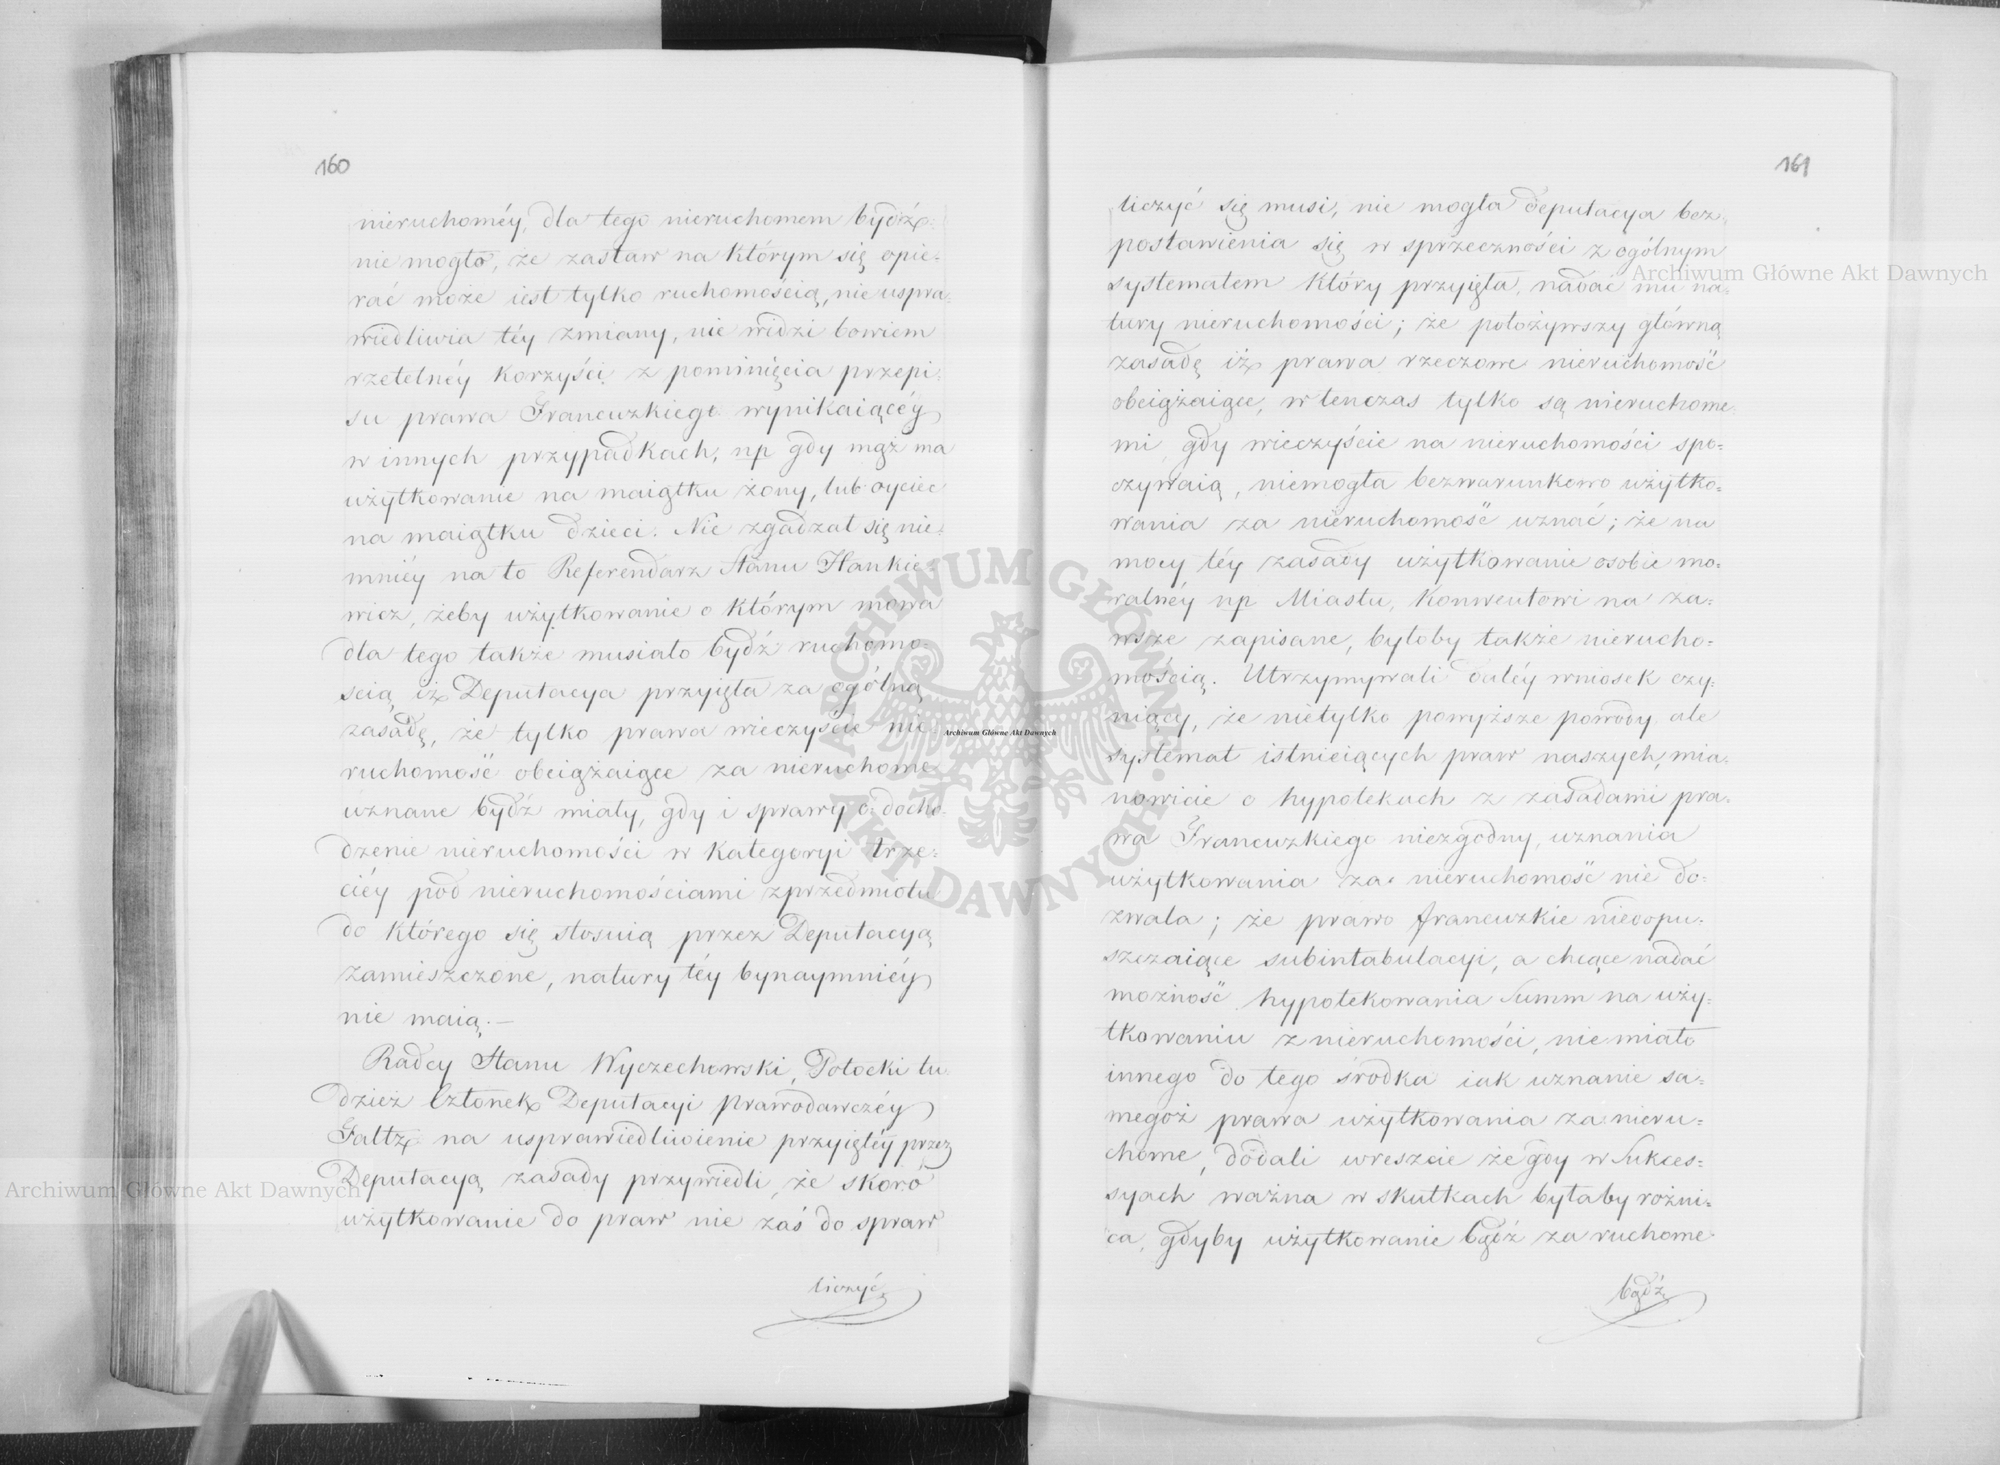 160
nieruchoméy, dla tego nieruchomem bydź
nie mogło, że zastaw na którym się opie-
rać może iest tylko ruchomością, nie uspra-
wiedliwia téy zmiany, nie widzi bowiem
rzetelnéy korzyści z pominięcia przepi-
su prawa Francuzkiego wynikaiącéy
w innych przypadkach, np gdy mąż ma
użytkowanie na maiątku żony, lub oyciec
na maiątku dzieci. Nie zgadzał się nie-
mniéy na to Referendarz Stanu Hankie-
wicz, żeby użytkowanie o którym mowa
dla tego także musiało bydź ruchomo-
scią, iż Deputacya przyięła za ogólną
zasadę, że tylko prawa wieczyście nie-
ruchomość obciążaiące za nieruchome
uznane bydź miały, gdy i sprawy o docho-
dzenie nieruchomości w kategoryi trze-
ciéy pod nieruchomościami z przedmiotu
do którego się stosuią przez Deputacyą
zamieszczone, natury téy bynaymniéy
nie maią.—
Radcy Stanu Wyczechowski, Potocki tu
dzież Członek Deputacyi prawodawczéy
Faltz na usprawiedliwienie przyiętéy przez
Deputacyą zasady przywiedli, że skoro
użytkowanie do praw nie zaś do spraw
liczyć
161
liczyć się musi, nie mogła deputacya bez
postawienia się w sprzeczności z ogólnym
systematem który przyięła, nadać mu na-
tury nieruchomości; że położywszy główną
zasadę iż prawa rzeczowe nieruchomość
obciążaiące, w tenczas tylko są nieruchome
mi, gdy wieczyście na nieruchomości spo-
czywaią, niemogła bezwarunkowo użytko-
wania za nieruchomość uznać; że na
mocy téy zasady użytkowanie osobie mo-
ralnéy np Miastu, Konwentowi na za-
wsze zapisane, byłoby także nierucho-
mością. Utrzymywali daléy wniosek czy-
niący, że nietylko powyższe powody ale
systemat istnieiących praw naszych, mia-
nowicie o hypotekach z zasadami pra-
wa Francuzkiego niezgodny, uznania
użytkowania za nieruchomość nie do-
zwala; że prawo francuzkie niedopu-
szczaiące subintabulacyi, a chcące nadać
możność hypotekowania Summ na uży-
tkowaniu z nieruchomości, nie miało
innego do tego środka iak uznanie sa-
megoż prawa użytkowania za nieru-
chome, dodali wreszcie że gdy w Sukces-
syach ważna w skutkach byłaby różni-
ca, gdyby użytkowanie bądź za ruchome
bądź
Archiwum Główne Akt Dawnych
Archiwum Główne Akt Dawnych
Archiwum Główne Akt Dawnych
ARCHIWUM GŁÓWNE AKT DAWNYCH